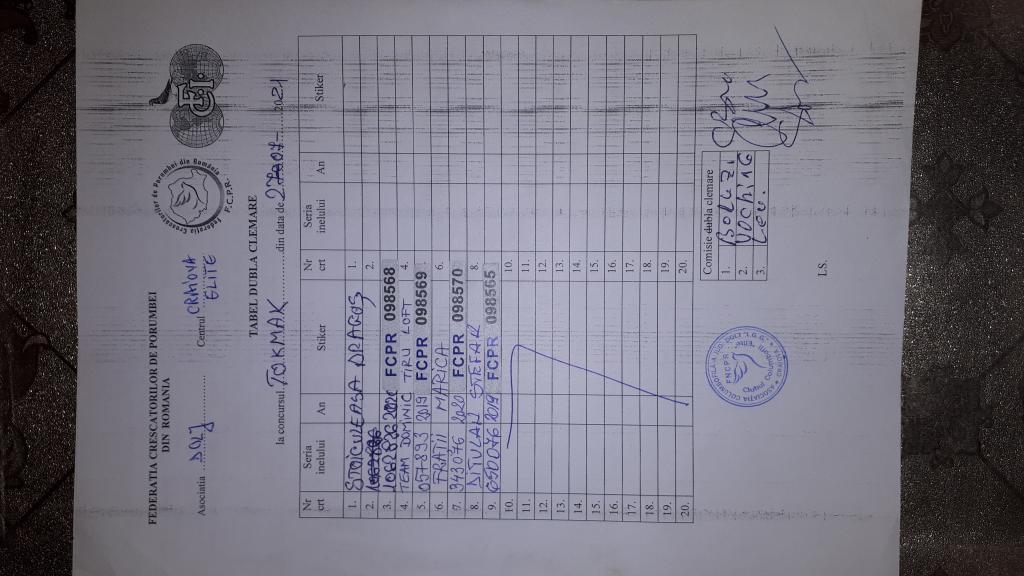 FEDERATIA CRESCATORILOR DE PORUMBEI
DIN ROMANIA
Asociatia ....DOLJ............. Centrul CRAIOVA
ELITE
Federatia Crescatorilor de Porumbei din România
F.C.P.R.
TABEL DUBLA CLEMARE
la concursul TOKMAK ............din data de 27.07- 2021
Nr crt Seria inelului An Stiker Nr crt Seria inelului An Stiker
1. STOICULEASA DRAGOȘ 1.
2. 2.
3. 2020 FCPR 098568
4. TEAM DOMINIC TIRU LOFT 4.
5. 057833 2019 FCPR 098569
6. FRATII MARICA 6.
7. 343076 2020 FCPR 098570
8. DITULAN STEFAN 8.
9. 2019 FCPR 098565
10. 10.
11. 11.
12. 12.
13. 13.
14. 14.
15. 15.
16. 16.
17. 17.
18. 18.
19. 19.
20. 20.
Comisie dubla clemare
1.
2.
3.
LS.